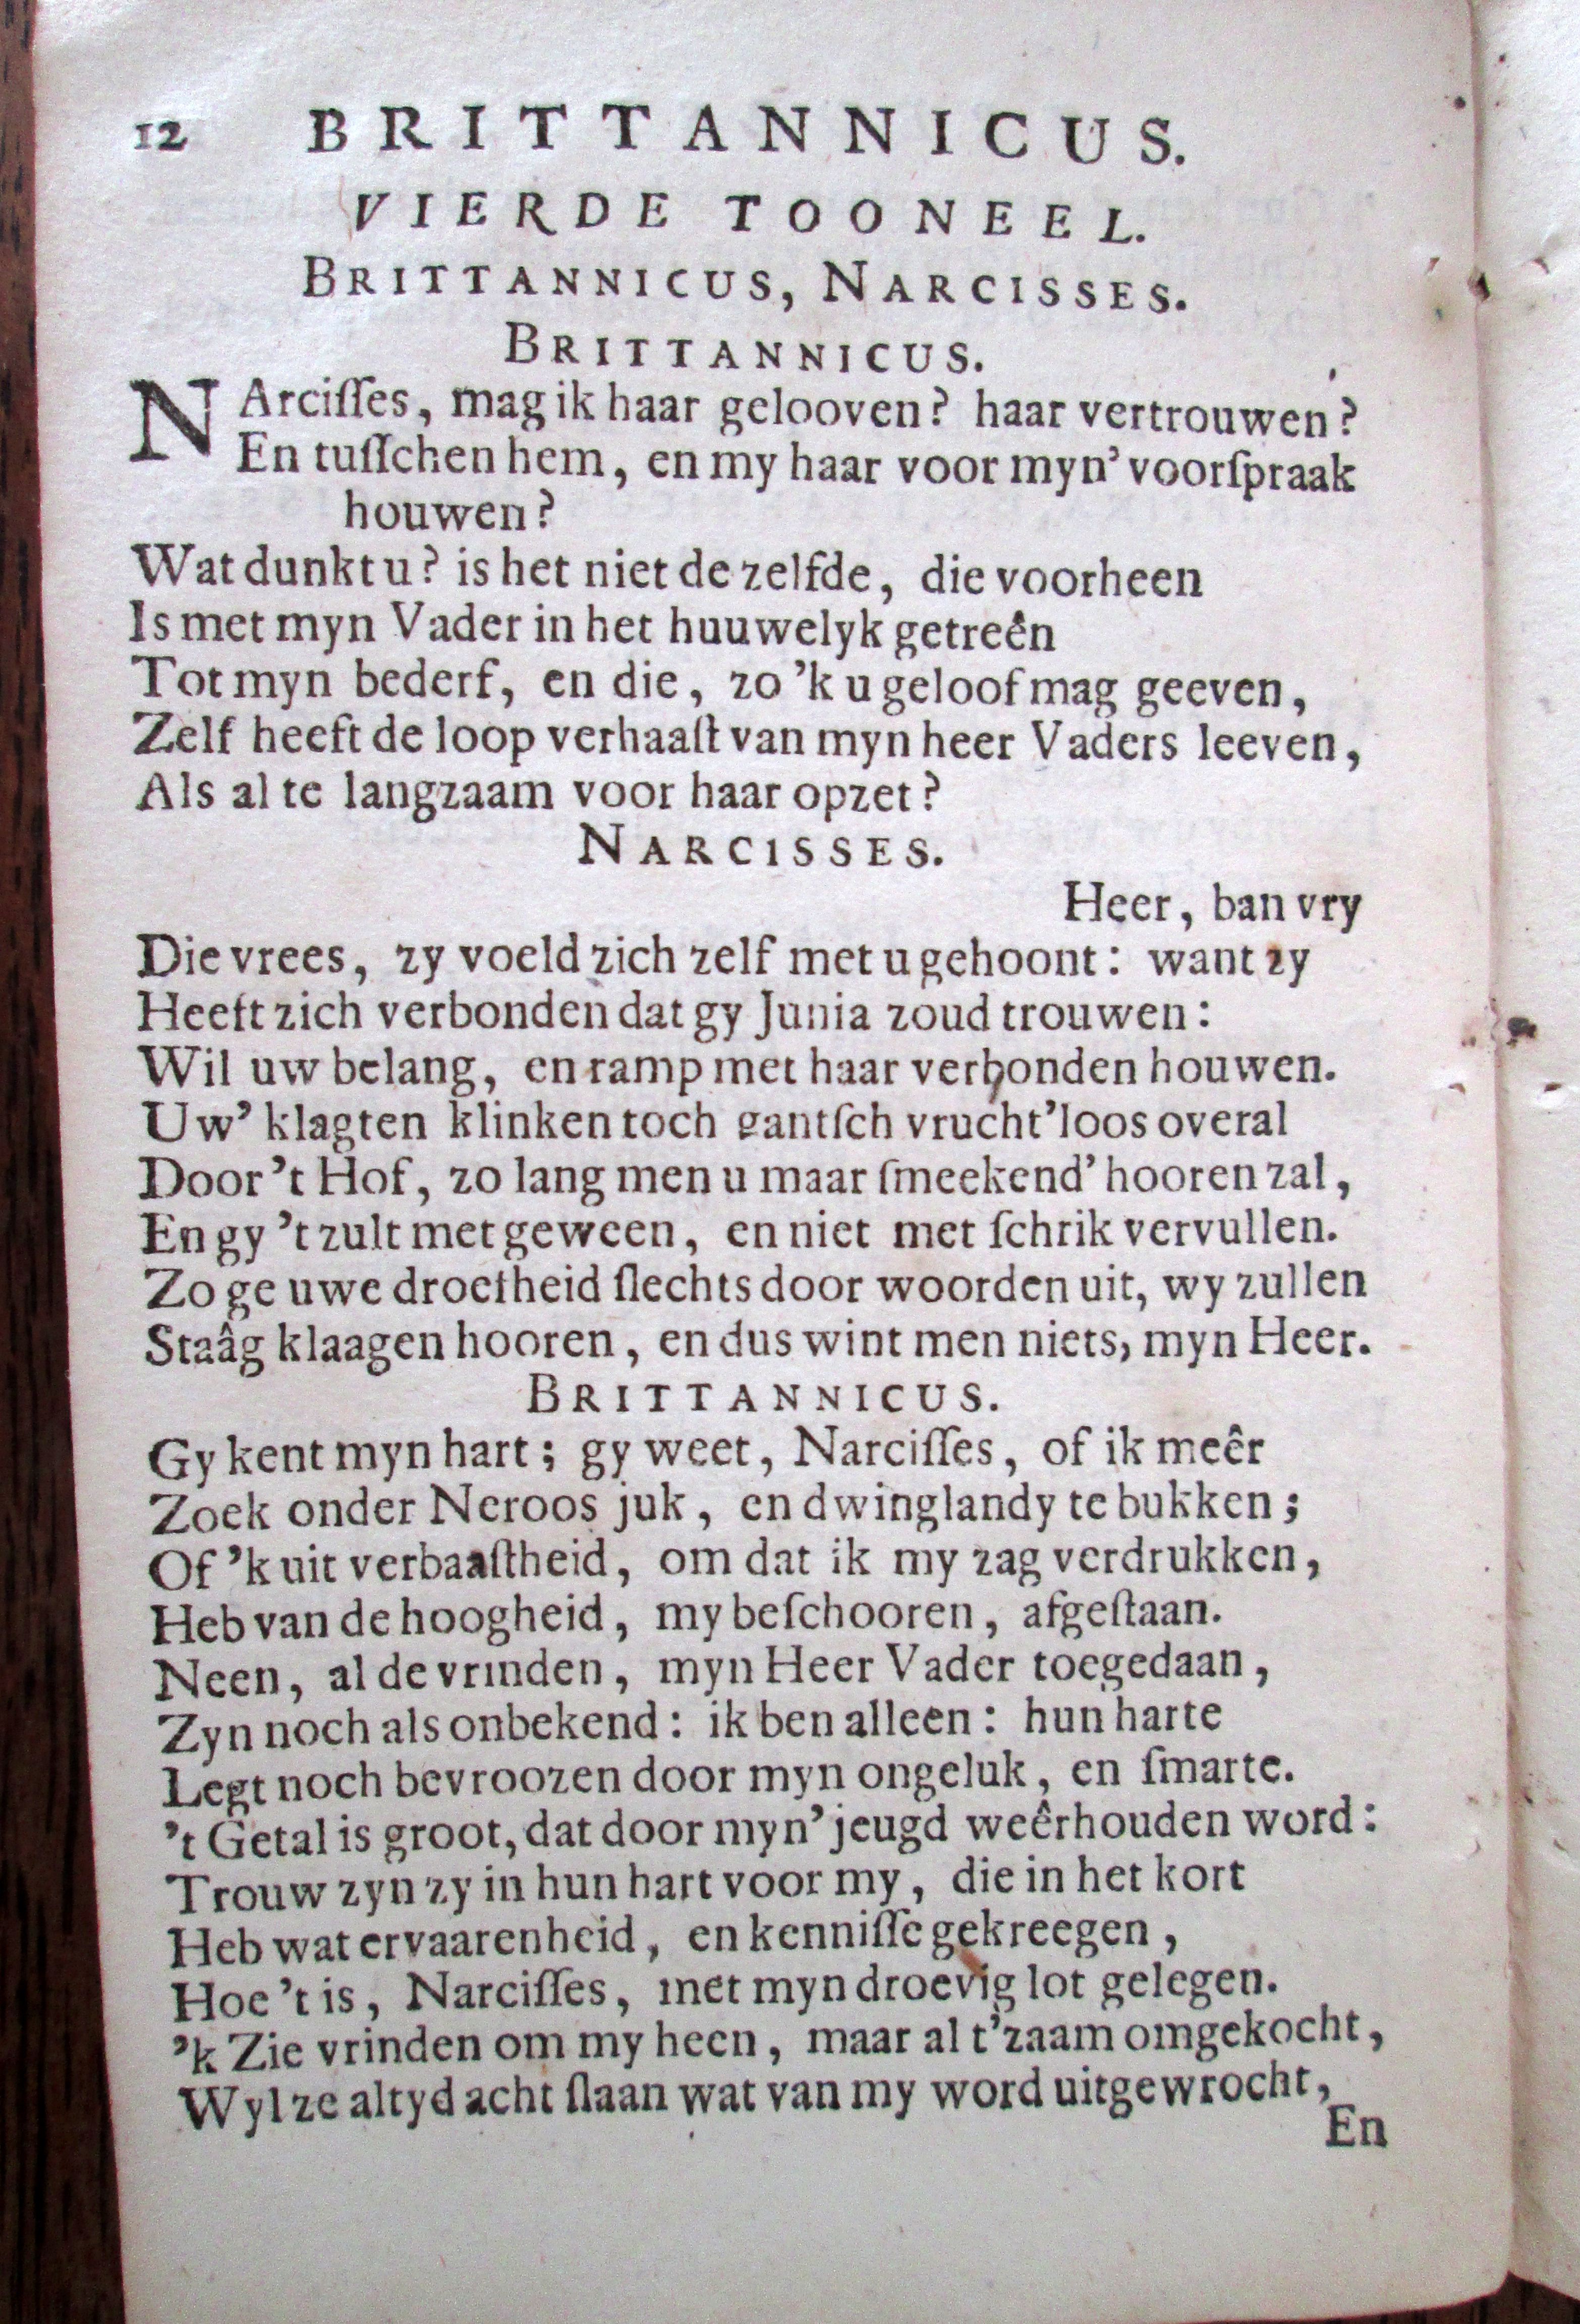 12 BRITTANNICUS.
VIERDE TOONEEL.
BRITTANNICUS, NARCISSES.
BRITTANNICUS.
NArciſſes, mag ik haar gelooven? haar vertrouwen?
En tuſſchen hem, en my haar voor myn’ voorſpraak
houwen?
Wat dunkt u? is het niet de zelfde, die voorheen
Is met myn Vader in het huuwelyk getreên
Tot myn bederf, en die, zo ’k u geloof mag geeven,
Zelf heeft de loop verhaaſt van myn heer Vaders leeven,
Als al te langzaam voor haar opzet?
NARCISSES.
Heer, ban vry
Die vrees, zy voeld zich zelf met u gehoont: want zy
Heeft zich verbonden dat gy Junia zoud trouwen:
Wil uw belang, en ramp met haar verbonden houwen.
Uw’ klagten klinken toch gantſch vrucht’loos overal
Door ’t Hof, zo lang men u maar ſmeekend’ hooren zal,
En gy ’t zult met geween, en niet met ſchrik vervullen.
Zo ge uwe droefheid ſlechts door woorden uit, wy zullen
Staâg klaagen hooren, en dus wint men niets, myn Heer.
BRITTANNICUS.
Gy kent myn hart; gy weet, Narciſſes, of ik meêr
Zoek onder Neroos juk, en dwinglandy te bukken;
Of ’k uit verbaaſtheid, om dat ik my zag verdrukken,
Heb van de hoogheid, my beſchooren, afgeſtaan.
Neen, al de vrinden, myn Heer Vader toegedaan,
Zyn noch als onbekend: ik ben alleen: hun harte
Legt noch bevroozen door myn ongeluk, en ſmarte.
’t Getal is groot, dat door myn’ jeugd weêrhouden word:
Trouw zyn zy in hun hart voor my, die in het kort
Heb wat ervaarenheid, en kenniſſe gekreegen,
Hoe ’t is, Narciſſes, met myn droevig lot gelegen.
’k Zie vrinden om my heen, maar al t’zaam omgekocht,
Wyl ze altyd acht ſlaan wat van my word uitgewrocht,
En